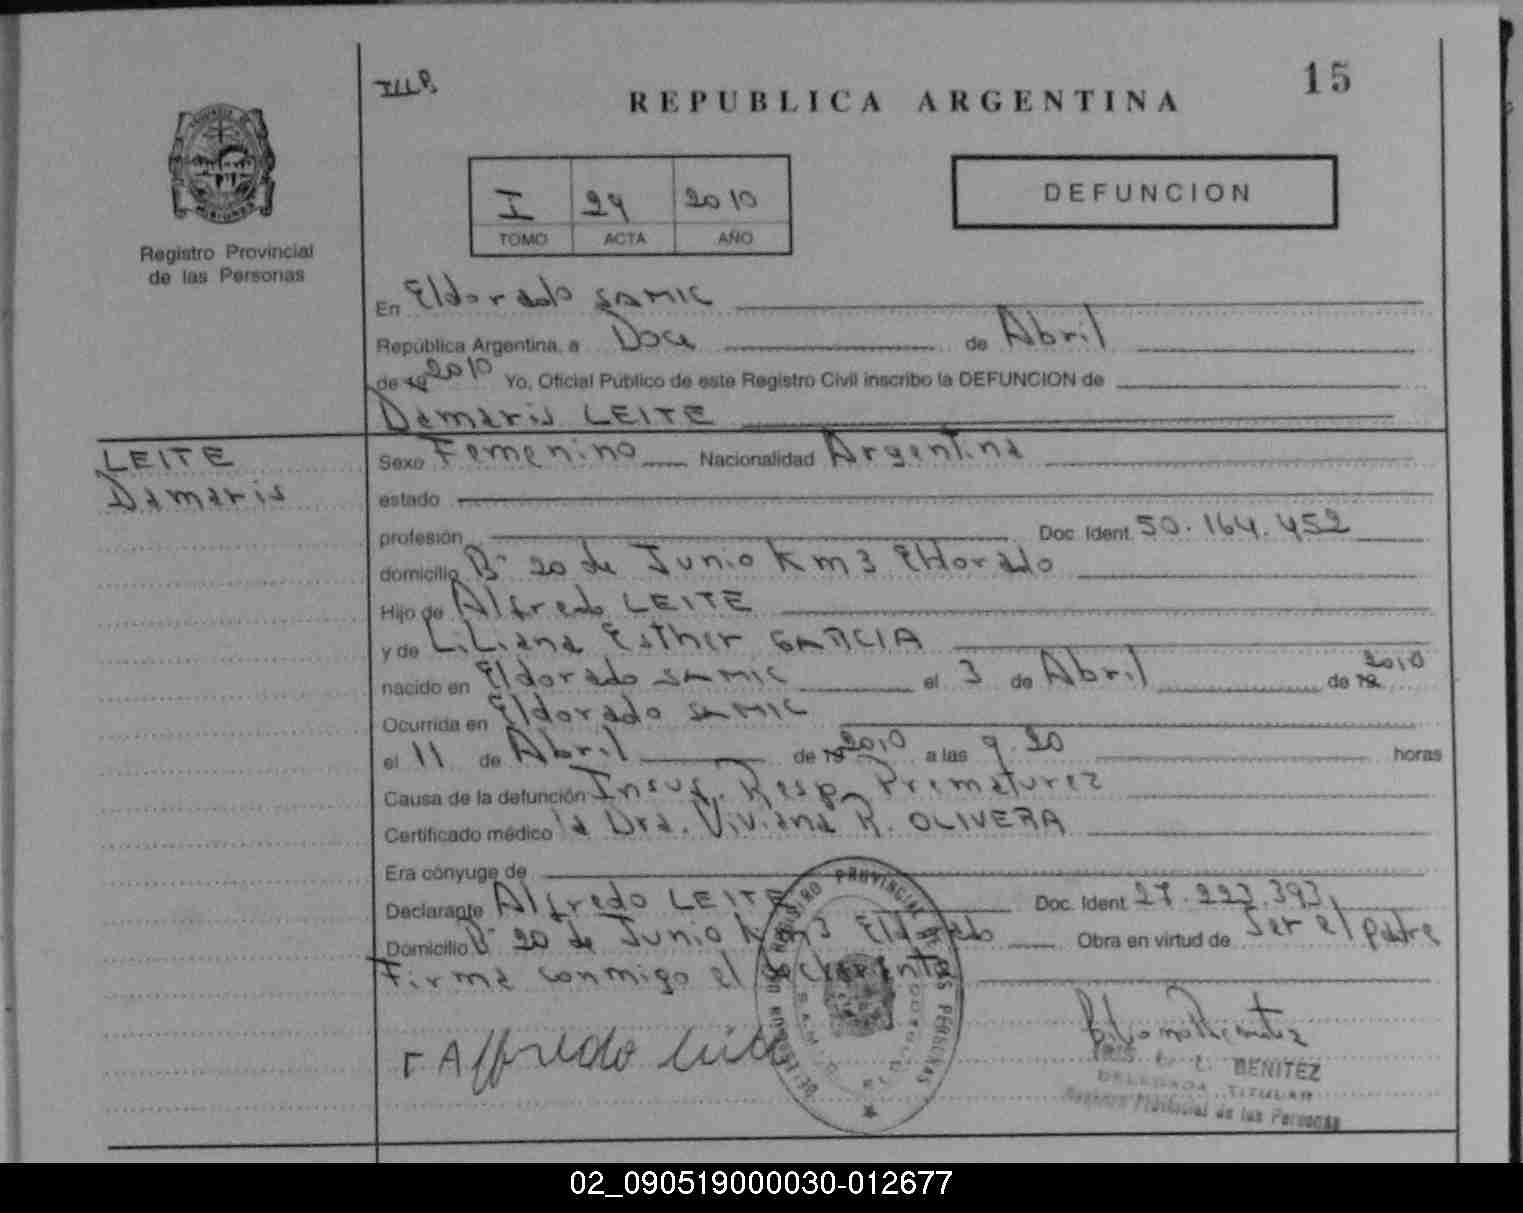 15
REPUBLICA ARGENTINA
I 24 2010
TOMO ACTA AÑO
DEFUNCION
MISIONES
Registro Provincial
de las Personas
En Eldorado SAMIC
República Argentina, a Doce de Abril
de 19 2010 Yo, Oficial Público de este Registro Civil inscribo la DEFUNCION de
Damaris LEITE
LEITE
Damaris
Sexo Femenino Nacionalidad Argentina
estado
profesión Doc. Ident. 50.164.452
domicilio Bº 20 de Junio Km 3 Eldorado
Hijo de Alfredo LEITE
y de Liliana Esther GARCIA
nacido en Eldorado SAMIC el 3 de Abril de 19 2010
Ocurrida en Eldorado SAMIC
el 11 de Abril de 19 2010 a las 9.20 horas
Causa de la defunción Insuf. Resp. Prematurez
Certificado médico la Dra. Viviana R. OLIVERA
Era cónyuge de
Declarante Alfredo LEITE Doc. Ident. 27.223.393,
Domicilio Bº 20 de Junio Km 3 Eldorado Obra en virtud de Ser el padre
Firma conmigo el declarante
Alfredo Leite
REGISTRO PROVINCIAL DE LAS PERSONAS
BENITEZ
DELEGADA TITULAR
Registro Provincial de las Personas
02_090519000030-012677